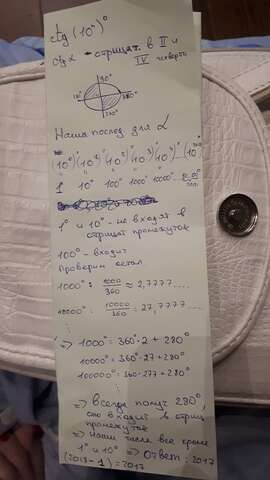 ctg (10ⁿ)°
ctg α - отрицат. в II и
IV четверти
90°
180°
Наша послед. для α
(10⁰)°(10¹)°(10²)°(10³)°(10⁴)°...(10
1° 10° 100° 1000° 10000°
1° и 10° - не входят в
отрицат промежуток
100° - входит
Проверим остал.
1000°: 1000/360 ≈ 2,7777....
10000°: 10000/360 = 27,7777....
⇒ 1000° = 360°·2 + 280°
10000° = 360°·27 + 280°
100000° = 360·277 + 280°
⇒ Всегда получ 280°,
входит в отриц
промежуток
⇒ Наши числа все кроме
1° и 10° ⇒ Ответ: 2017
(2018-1) = 2017